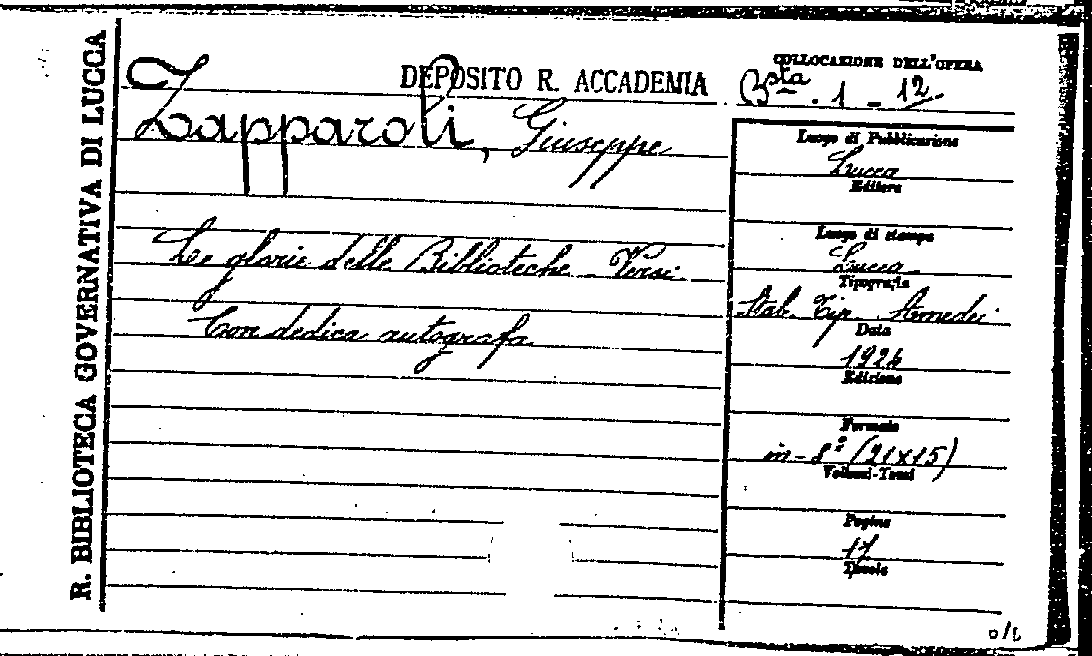 R. BIBLIOTECA GOVERNATIVA DI LUCCA
DEPOSITO R. ACCADEMIA
COLLOCAZIONE DELL'OPERA
Bsta. 1 - 12
Zapparoli, Giuseppe
Le glorie delle Biblioteche - Versi
Con dedica autografa
Luogo di Pubblicazione
Lucca
Editore
Luogo di stampa
Lucca
Tipografia
Stab. Tip. Amedei
Data
1924
Edizione
Formato
in-8º (21x15)
Volumi-Tomi
Pagine
17
Tavole